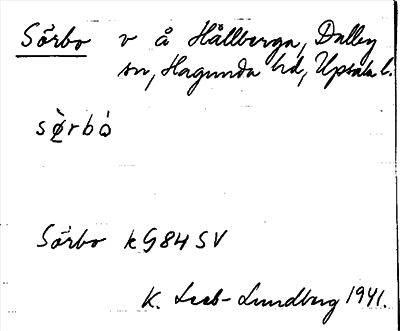 Sörbo v å Hållberga, Dalby
sn, Hagunda hd, Upsala l.
sø̀rbò
Sörbo kG84SV
K. Leeb-Lundberg 1941.